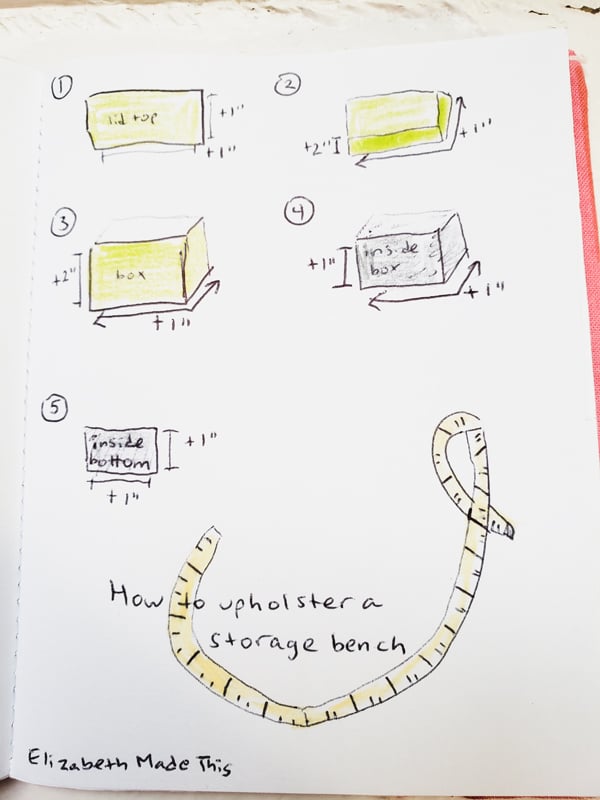 1
lid top
+1"
+1"
2
+2"
+1"
3
+2"
box
+1"
4
+1"
inside
box
+1"
5
inside
bottom
+1"
+1"
How to upholster a
storage bench
Elizabeth Made This